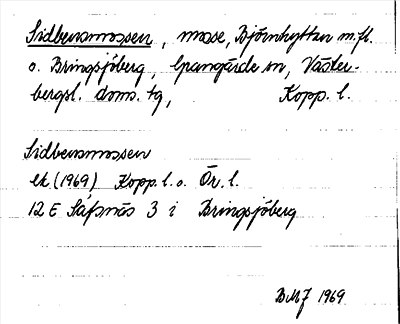 Sidbensmossen, mosse, Björnhyttan m.fl.
o. Bringsjöberg, Grangärde sn, Väster-
bergsl. doms. tg, Kopp. l.
Sidbensmossen
ek. (1969) Kopp. l. o. Ör. l.
12 E Säfsnäs 3 i Bringsjöberg
BMJ 1969